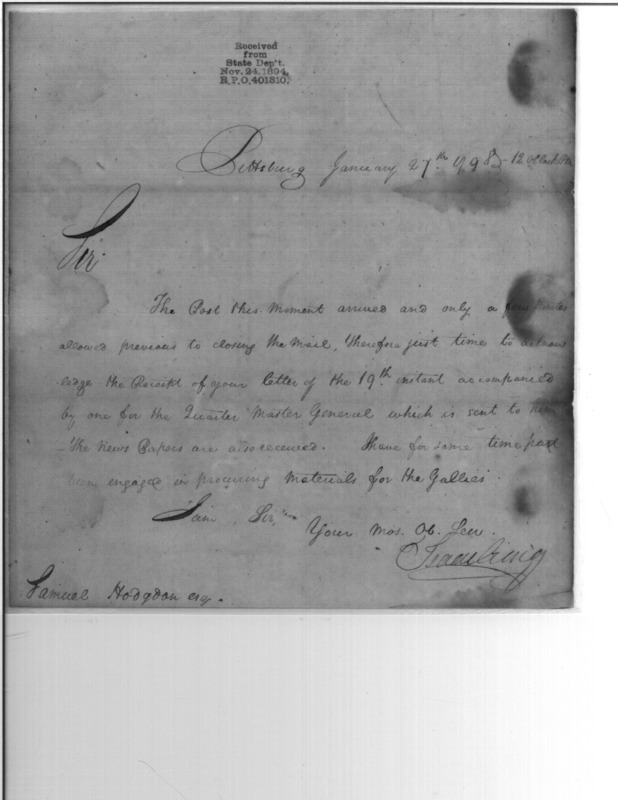 Received
from
State Dep't.
Nov. 24. 1894.
R.P.O. 401310.
Pittsburg January 27th 1798 - 12 oClock
Sir
The Post this moment arrived and only a few minutes
allowed previous to closing the Mail, therefore just time to acknow
ledge the Receipt of your letter of the 19th instant accompanied
by one for the Quarter Master General which is sent to him
- The News Papers are also received. I have for some time past
been engaged in procuring Materials for the Gallies
I am Sir,
Your Mos. Ob. Ser.
Isaac Craig
Samuel Hodgdon esq.